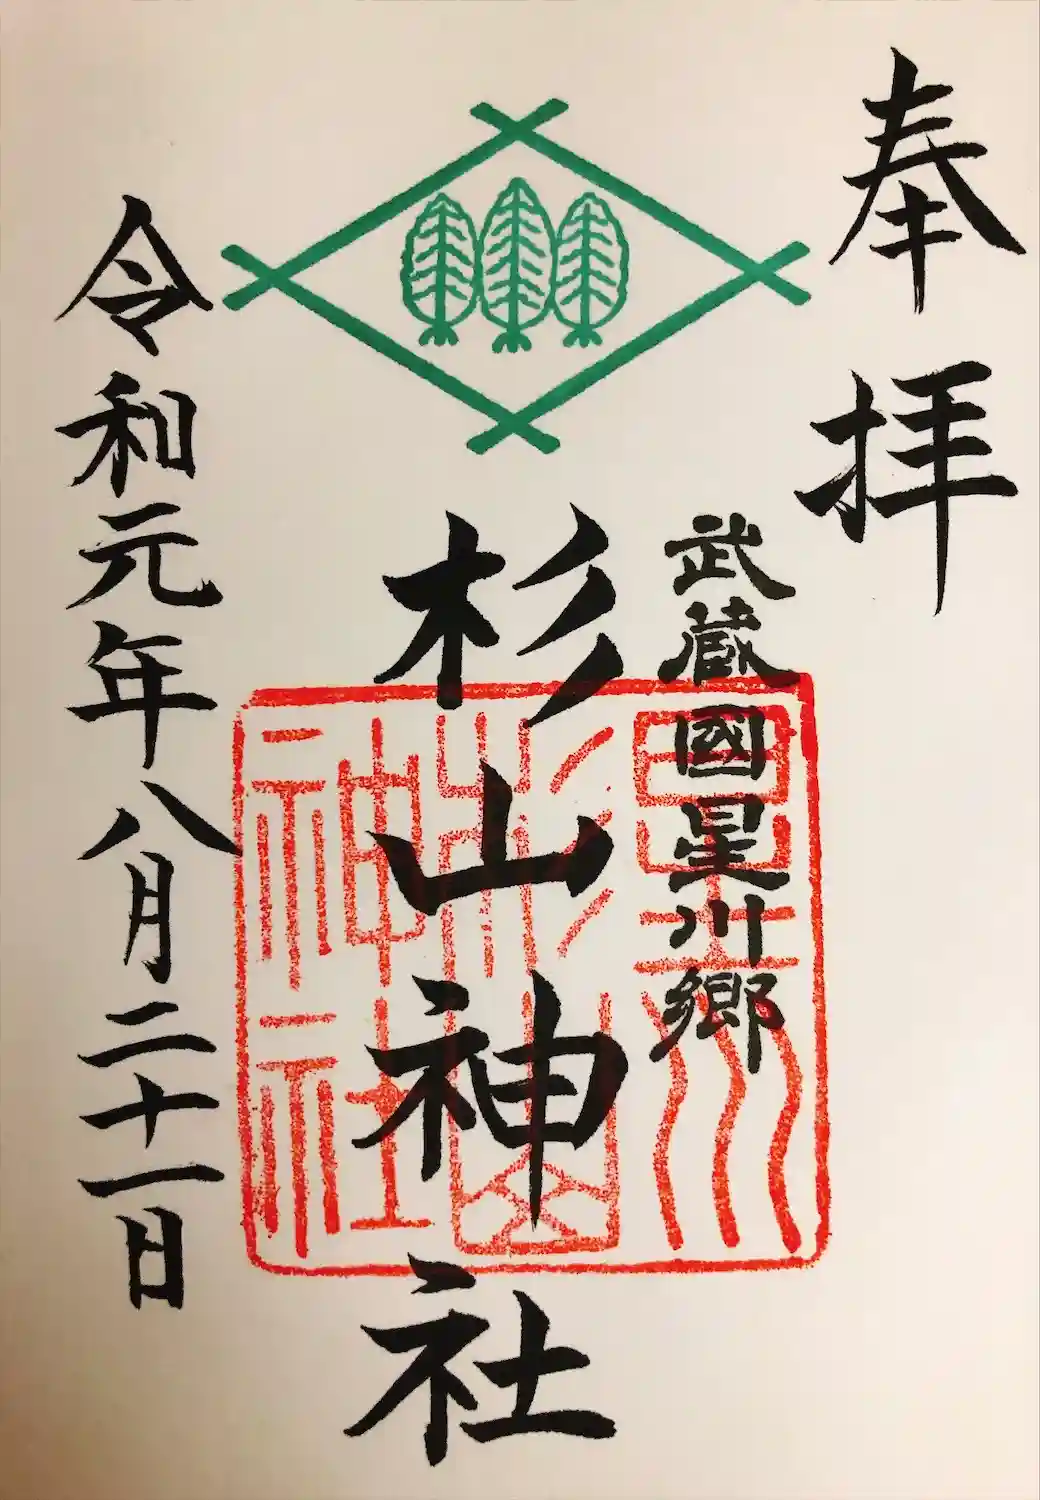 奉拝
武蔵國星川郷
杉山神社
令和元年八月二十一日
星川
杉山
神社